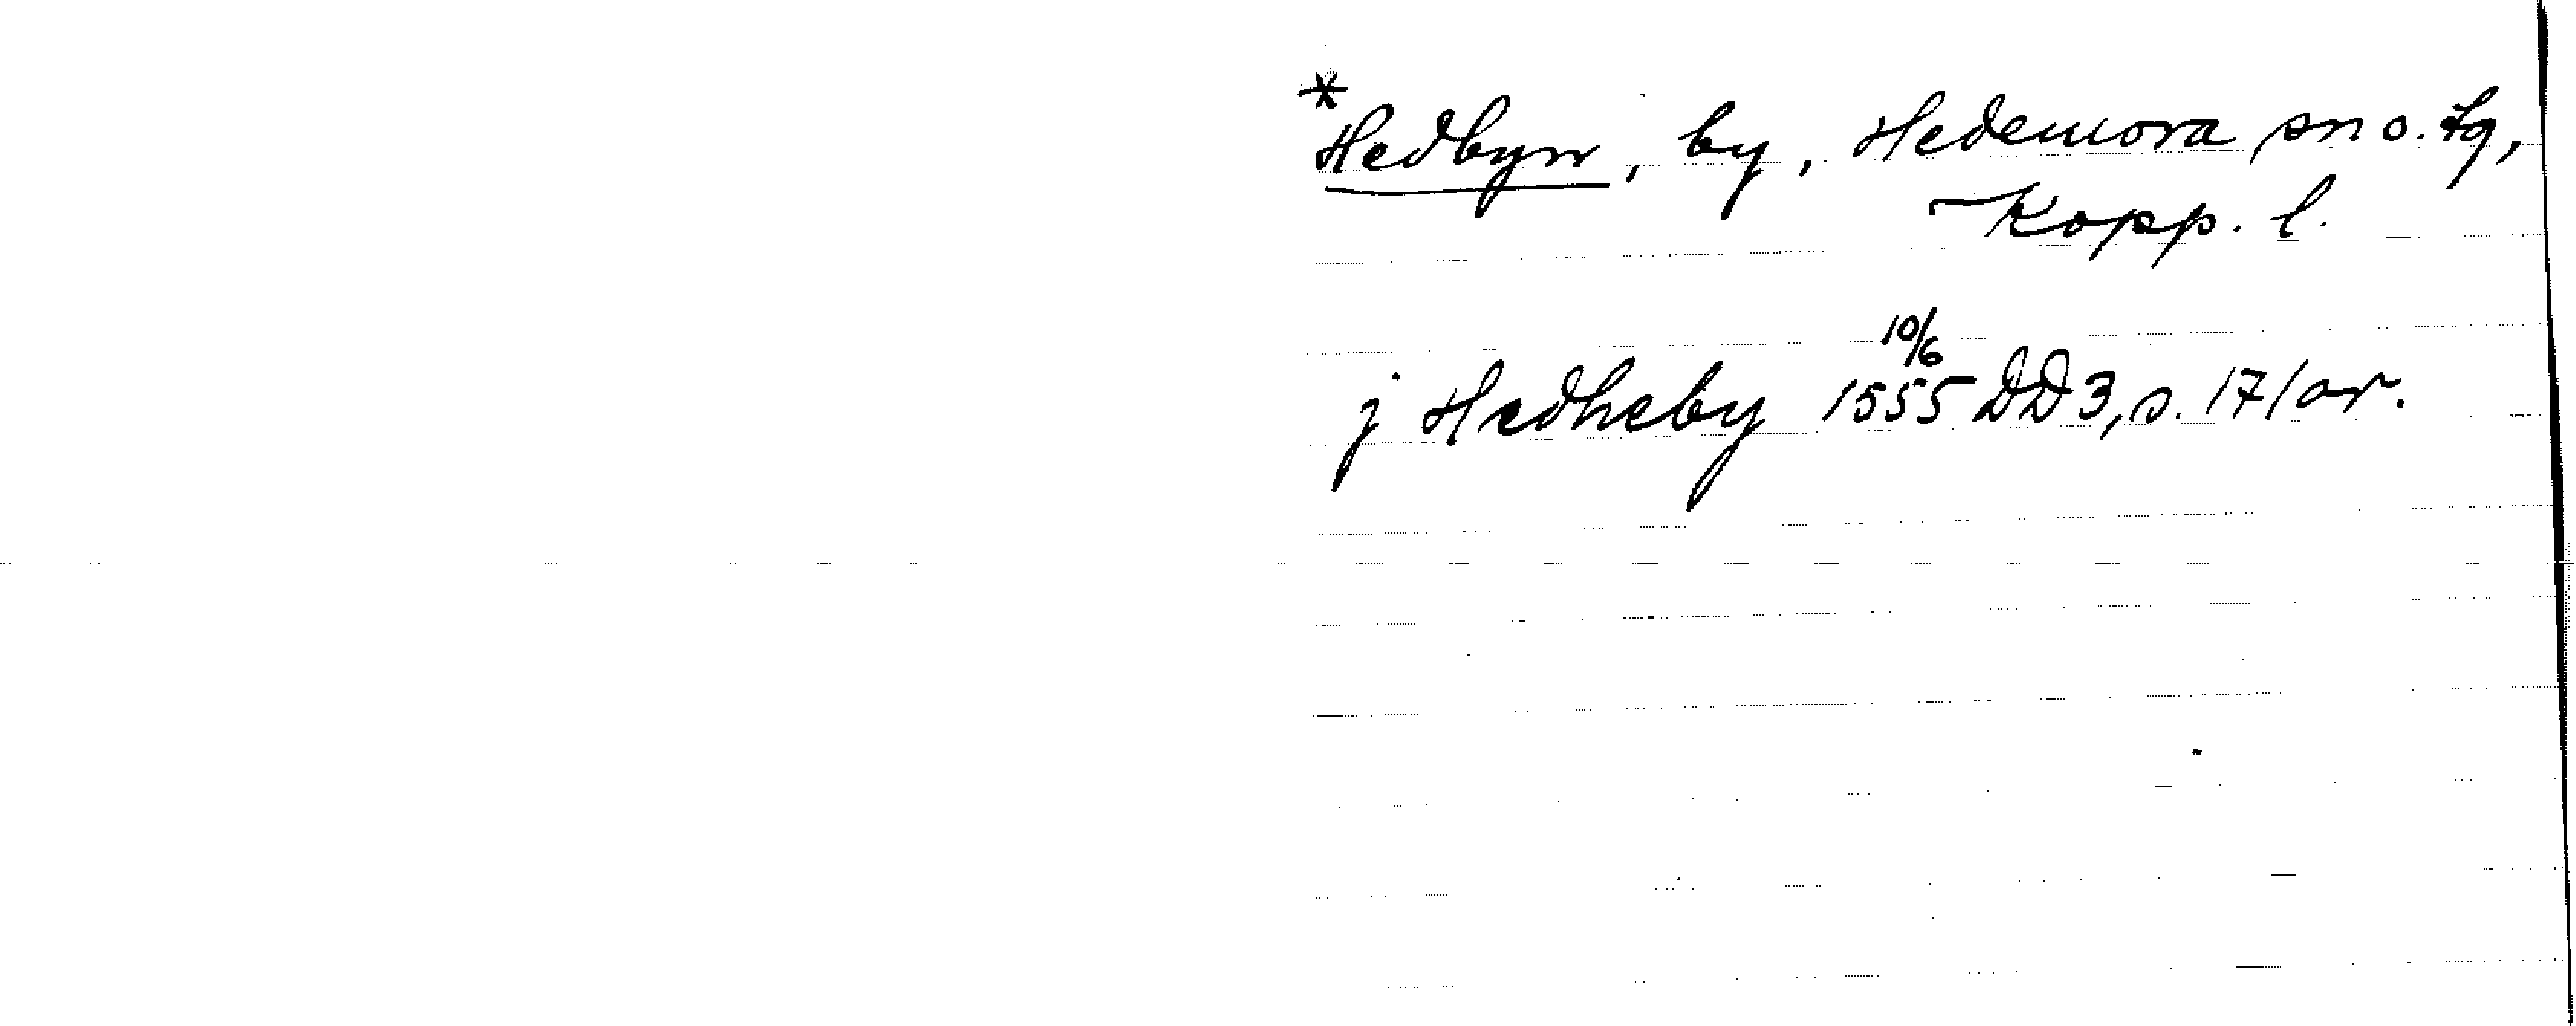 *Hedbyn, by, Hedemora sn o. tg,
Kopp. l.
j Hedheby 10/6 1555 DD 3, s. 171 or.